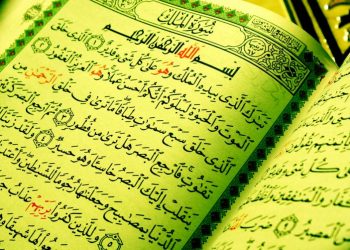 سُورَةُ المُلْكِ
بِسْمِ اللَّهِ الرَّحْمَٰنِ الرَّحِيمِ
تَبَٰرَكَ ٱلَّذِى بِيَدِهِ ٱلْمُلْكُ وَهُوَ عَلَىٰ كُلِّ شَىْءٍ قَدِيرٌ ١ ٱلَّذِى خَلَقَ
ٱلْمَوْتَ وَٱلْحَيَوٰةَ لِيَبْلُوَكُمْ أَيُّكُمْ أَحْسَنُ عَمَلًا وَهُوَ ٱلْعَزِيزُ ٱلْغَفُورُ ٢
ٱلَّذِى خَلَقَ سَبْعَ سَمَٰوَٰتٍ طِبَاقًا مَّا تَرَىٰ فِى خَلْقِ ٱلرَّحْمَٰنِ مِن
تَفَٰوُتٍ فَٱرْجِعِ ٱلْبَصَرَ هَلْ تَرَىٰ مِن فُطُورٍ ٣ ثُمَّ ٱرْجِعِ ٱلْبَصَرَ
يَنقَلِبْ إِلَيْكَ ٱلْبَصَرُ خَاسِئًا وَهُوَ حَسِيرٌ
ٱلدُّنْيَا بِمَصَٰبِيحَ وَجَعَلْنَٰهَا رُجُومًا لِّلشَّيَٰطِينِ
وَلِلَّذِينَ كَفَرُوا۟ بِرَبِّهِمْ عَذَابُ